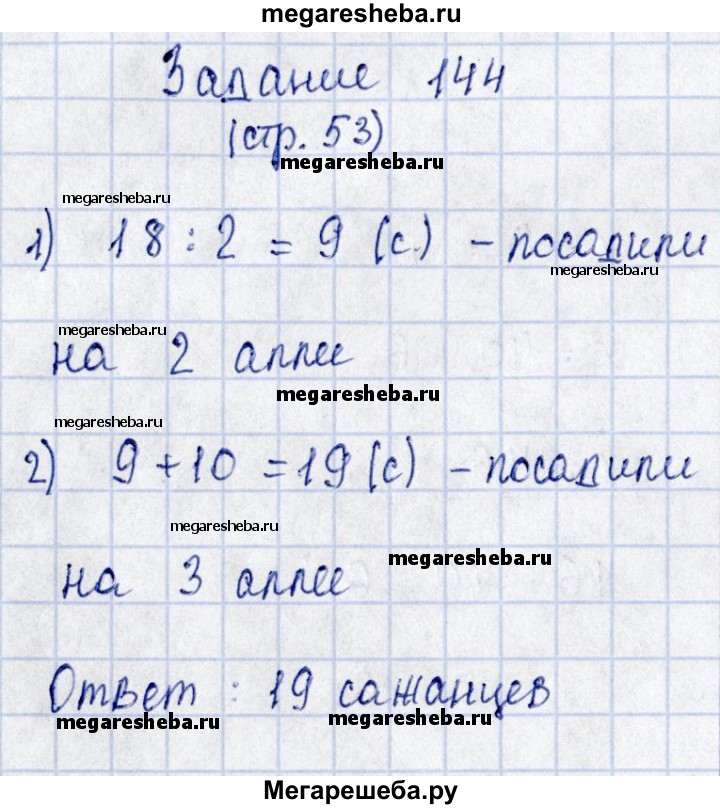 megaresheba.ru
Задание 144
(стр. 53)
megaresheba.ru
megaresheba.ru
1) 18 : 2 = 9 (с.) - посадили
megaresheba.ru
megaresheba.ru
на 2 аллее
megaresheba.ru
megaresheba.ru
2) 9 + 10 = 19 (с) - посадили
megaresheba.ru
megaresheba.ru
на 3 аллее
Ответ : 19 сажанцев
megaresheba.ru
megaresheba.ru
Мегарешеба.ру